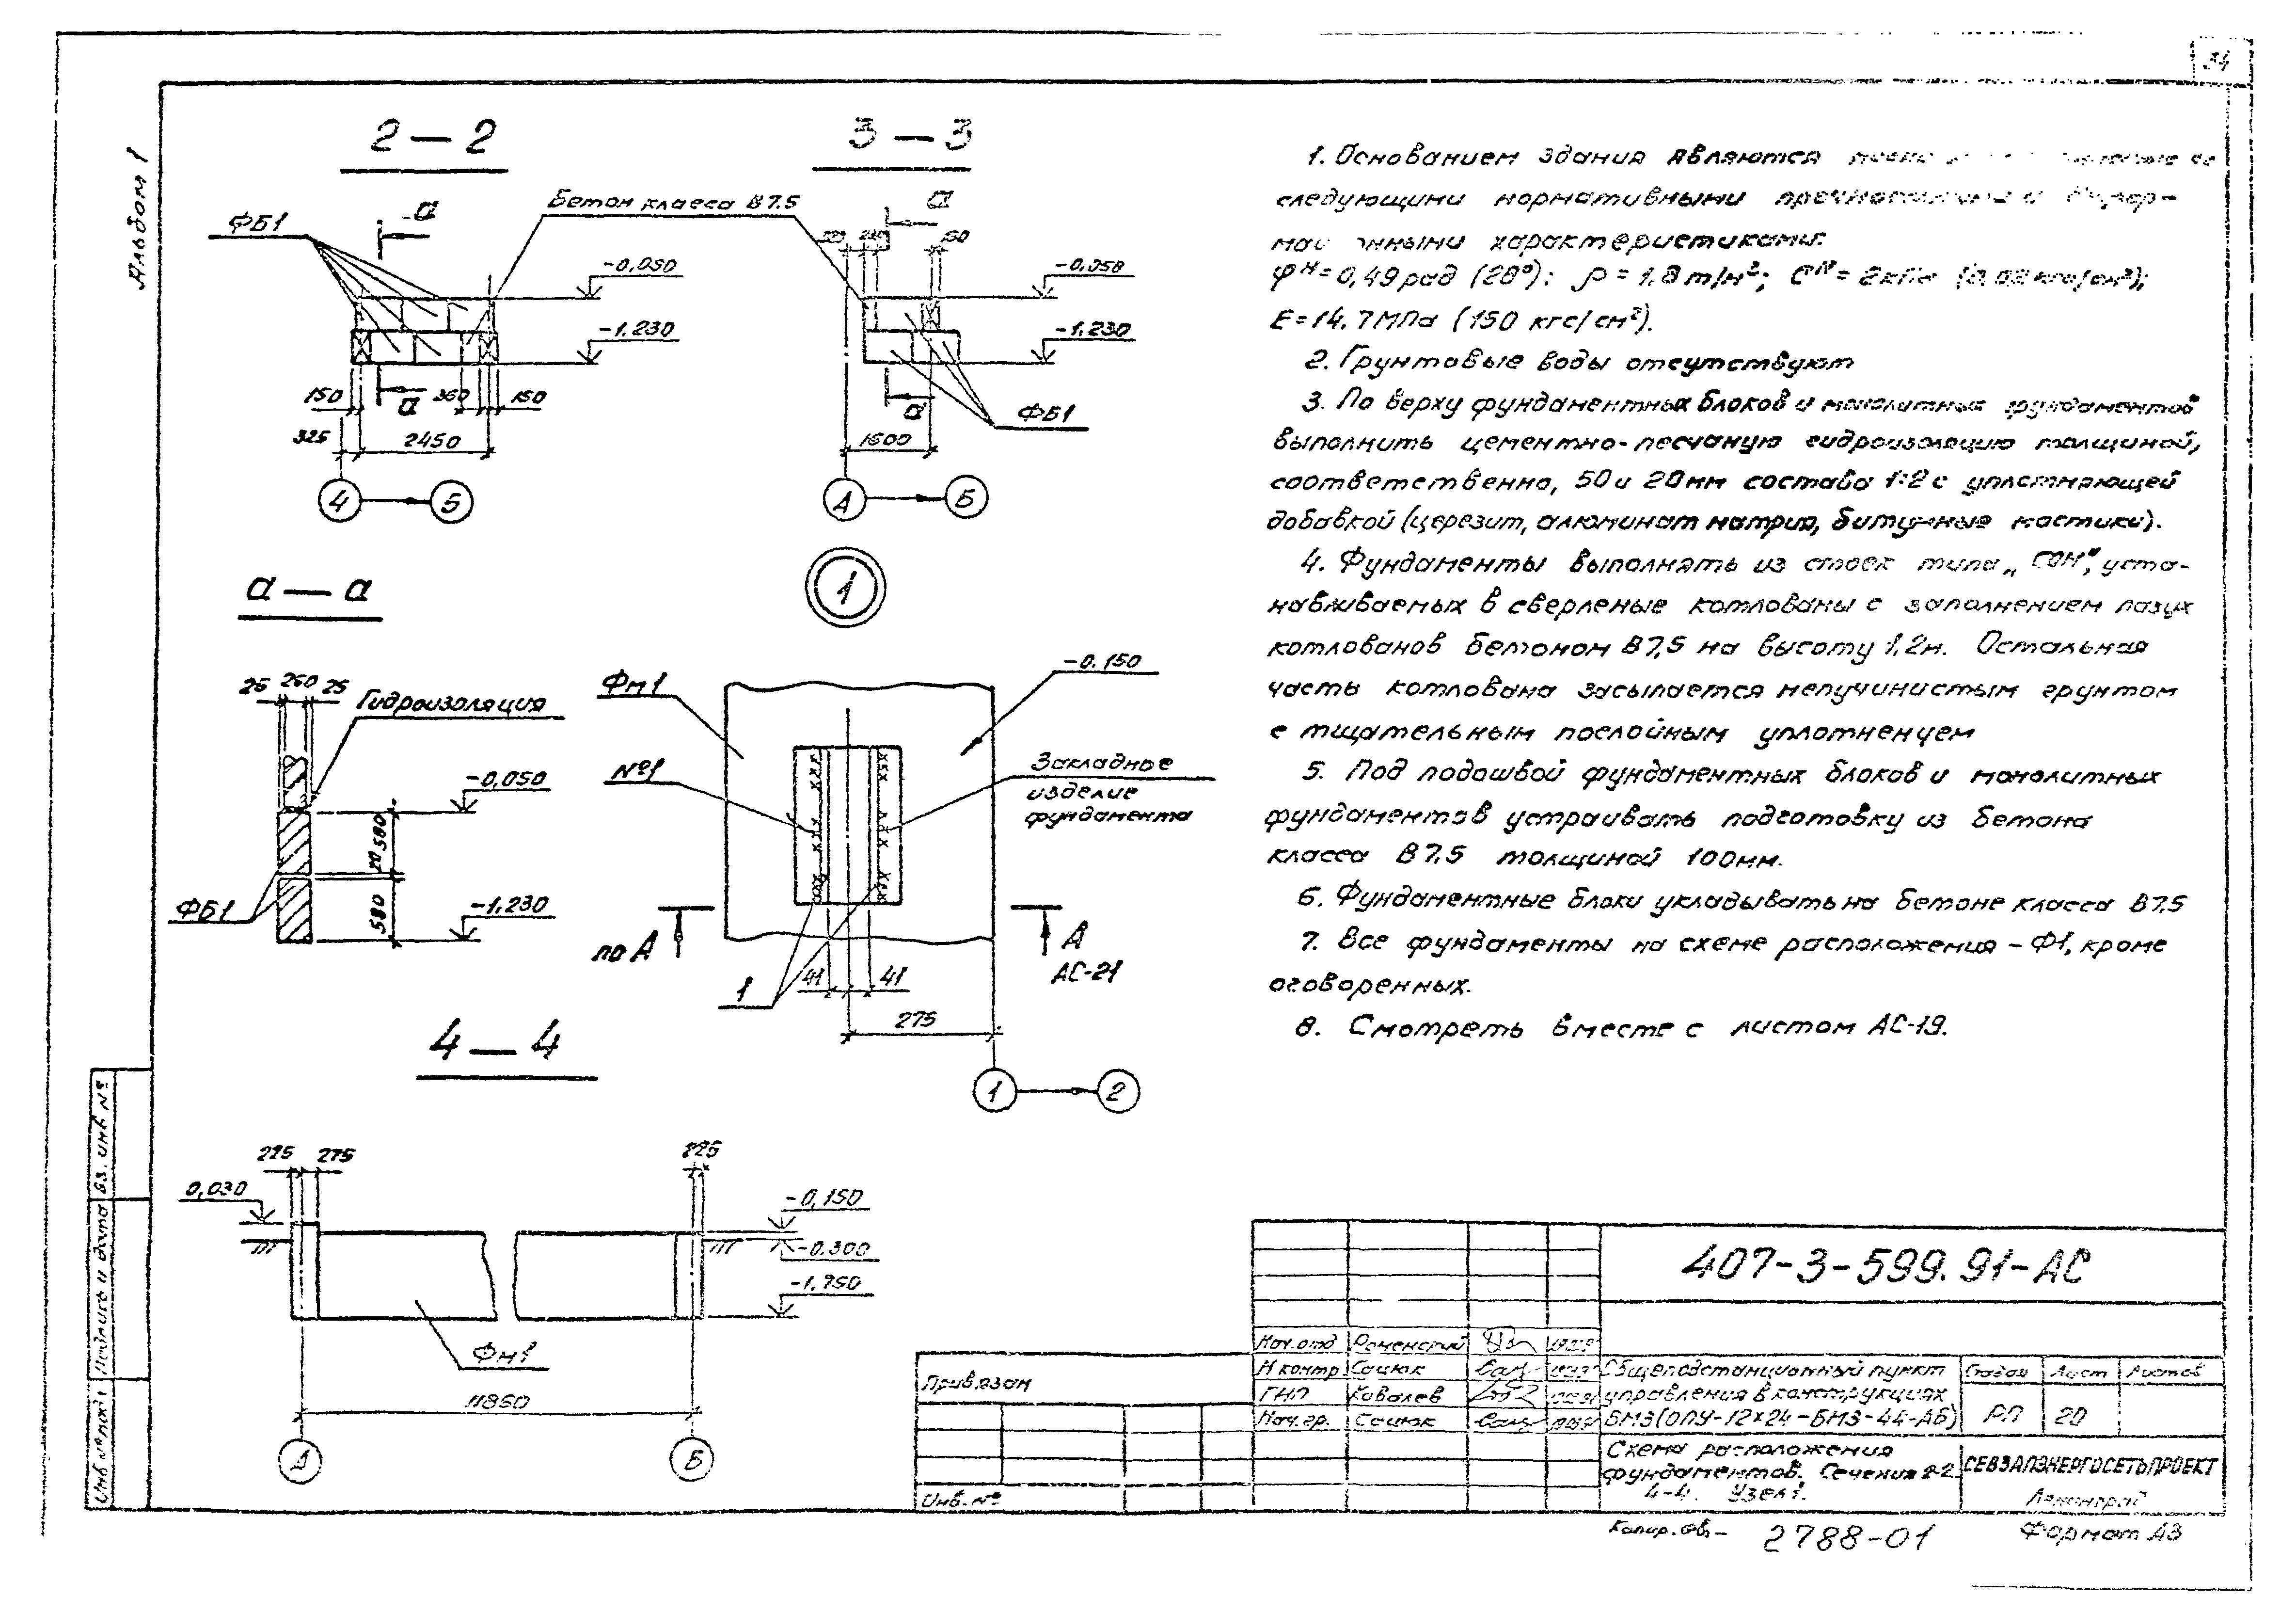 34
Альбом 1
2 — 2
3 — 3
ФБ1
а
Бетон класса В7.5
а
150
-0,050
-0,050
-1,230
-1,230
150
а
360
150
а
ФБ1
325
2450
1600
4
5
А
Б
а — а
1
25 260 25
Гидроизоляция
-0,050
580
20
580
ФБ1
-1,230
Фм1
-0.150
№1
Закладное
изделие
фундамента
по А
А
АС-21
1
41
41
275
1
2
4 — 4
225
275
225
0,030
-0,150
-0.300
Фм1
11850
А
Б
1. Основанием здания являются
следующими нормативными
характеристиками:
φн = 0,49 рад (28°); ρ = 1,8 т/м³; Сн = 2кПа (0,02 кгс/см²);
Е = 14,7 МПа (150 кгс/см²).
2. Грунтовые воды отсутствуют
3. По верху фундаментных блоков и монолитных фундаментов
выполнить цементно-песчаную гидроизоляцию толщиной,
соответственно, 50 и 20мм состава 1:2 с уплотняющей
добавкой (церезит, алюминат натрия, битумные мастики).
4. Фундаменты выполнять из стоек типа „СОН", уста-
навливаемых в сверленые котлованы с заполнением пазух
котлованов бетоном В7,5 на высоту 1,2м. Остальная
часть котлована засыпается непучинистым грунтом
с тщательным послойным уплотнением
5. Под подошвой фундаментных блоков и монолитных
фундаментов устраивать подготовку из бетона
класса В7,5 толщиной 100мм.
6. Фундаментные блоки укладывать на бетоне класса В7,5
7. Все фундаменты на схеме расположения – Ф1, кроме
оговоренных.
8. Смотреть вместе с листом АС-19.
407-3-599.91-АС
Нач.отд Роменский
Н контр Сацюк
ГИП Ковалев
Нач.гр. Сацюк
Общеподстанционный пункт
управления в конструкциях
БМЗ (ОПУ-12×24-БМЗ-44-АБ)
Стадия Лист Листов
РП 20
Схема расположения
фундаментов. Сечения 2-2
4-4. Узел 1.
СЕВЗАПЭНЕРГОСЕТЬПРОЕКТ
Ленинград
Привязан
Инв. №
Инв № подл Подпись и дата Вз. инв №
Копир.
2788-01
Формат А3